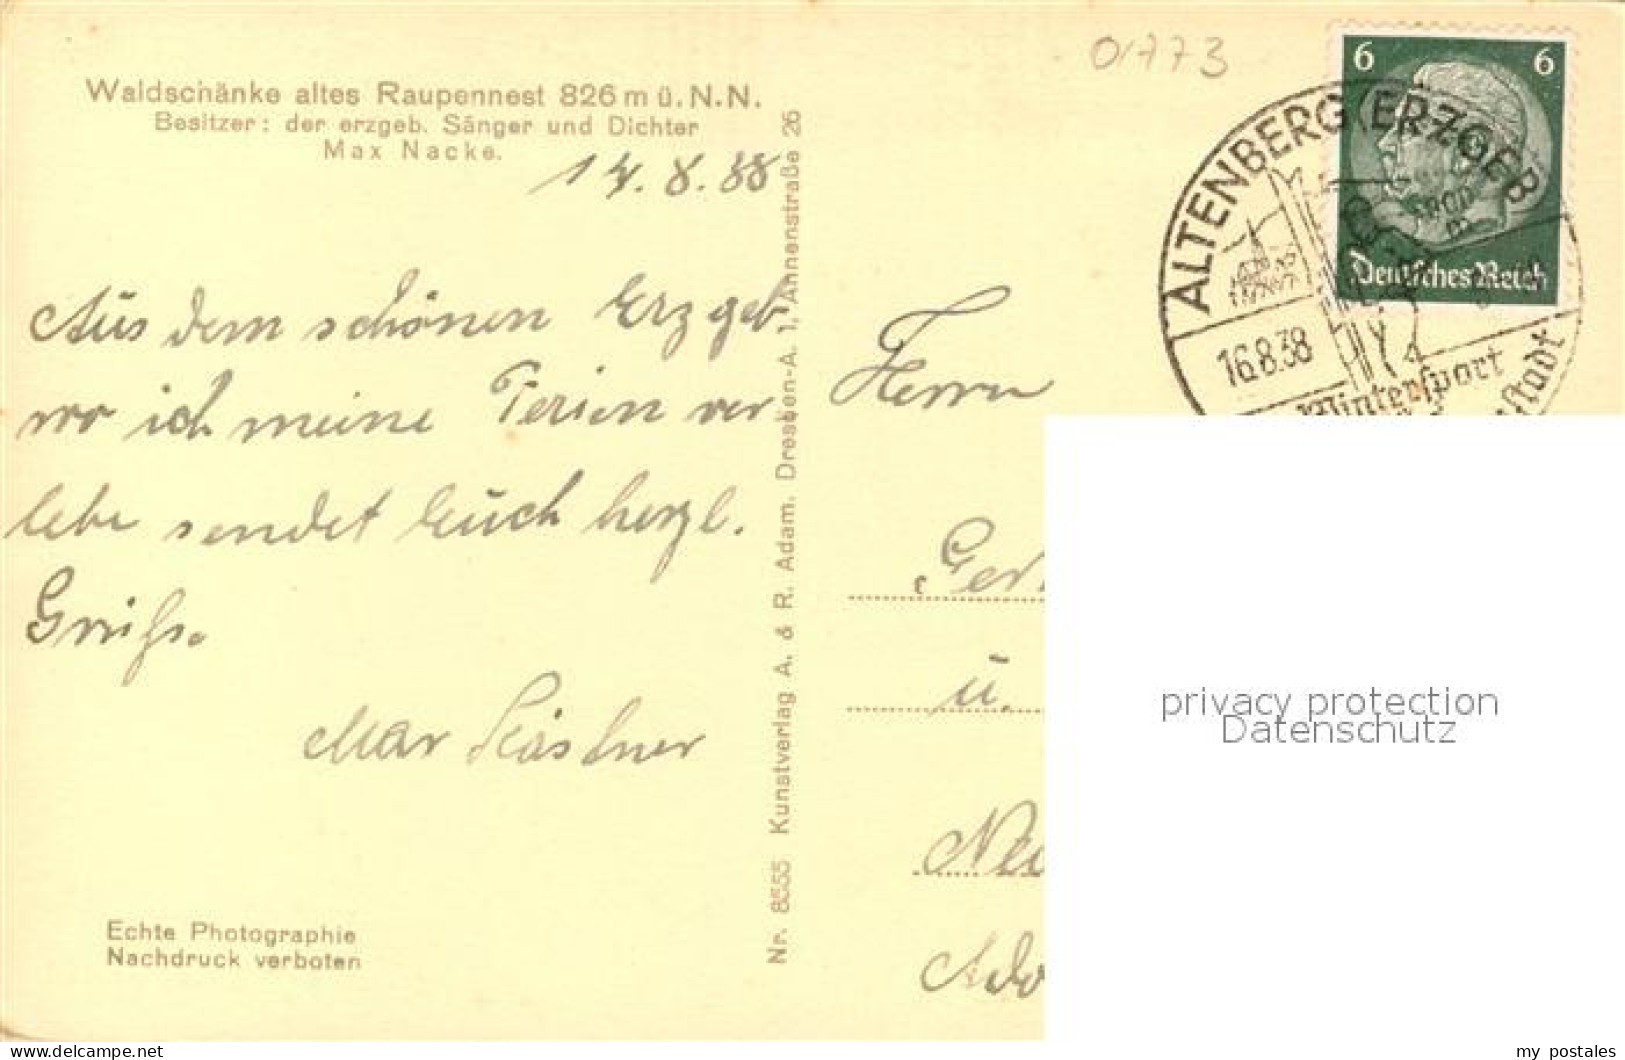 Waldschänke altes Raupennest 826 m ü. N. N.
Besitzer: der erzgeb. Sänger und Dichter
Max Nacke.
14. 8. 38
Aus dem schönen Erzgeb.
wo ich meine Ferien ver
lebe sendet Euch herzl.
Grüße.
Max Kästner
Echte Photographie
Nachdruck verboten
Nr. 8555 Kunstverlag A. & R. Adam, Dresden-A. 1, Annenstraße 26
01773
6 6
Deutsches Reich
ALTENBERG (ERZGEB
16.8.38
Wintersport
Herrn
u.
privacy protection
Datenschutz
my postales